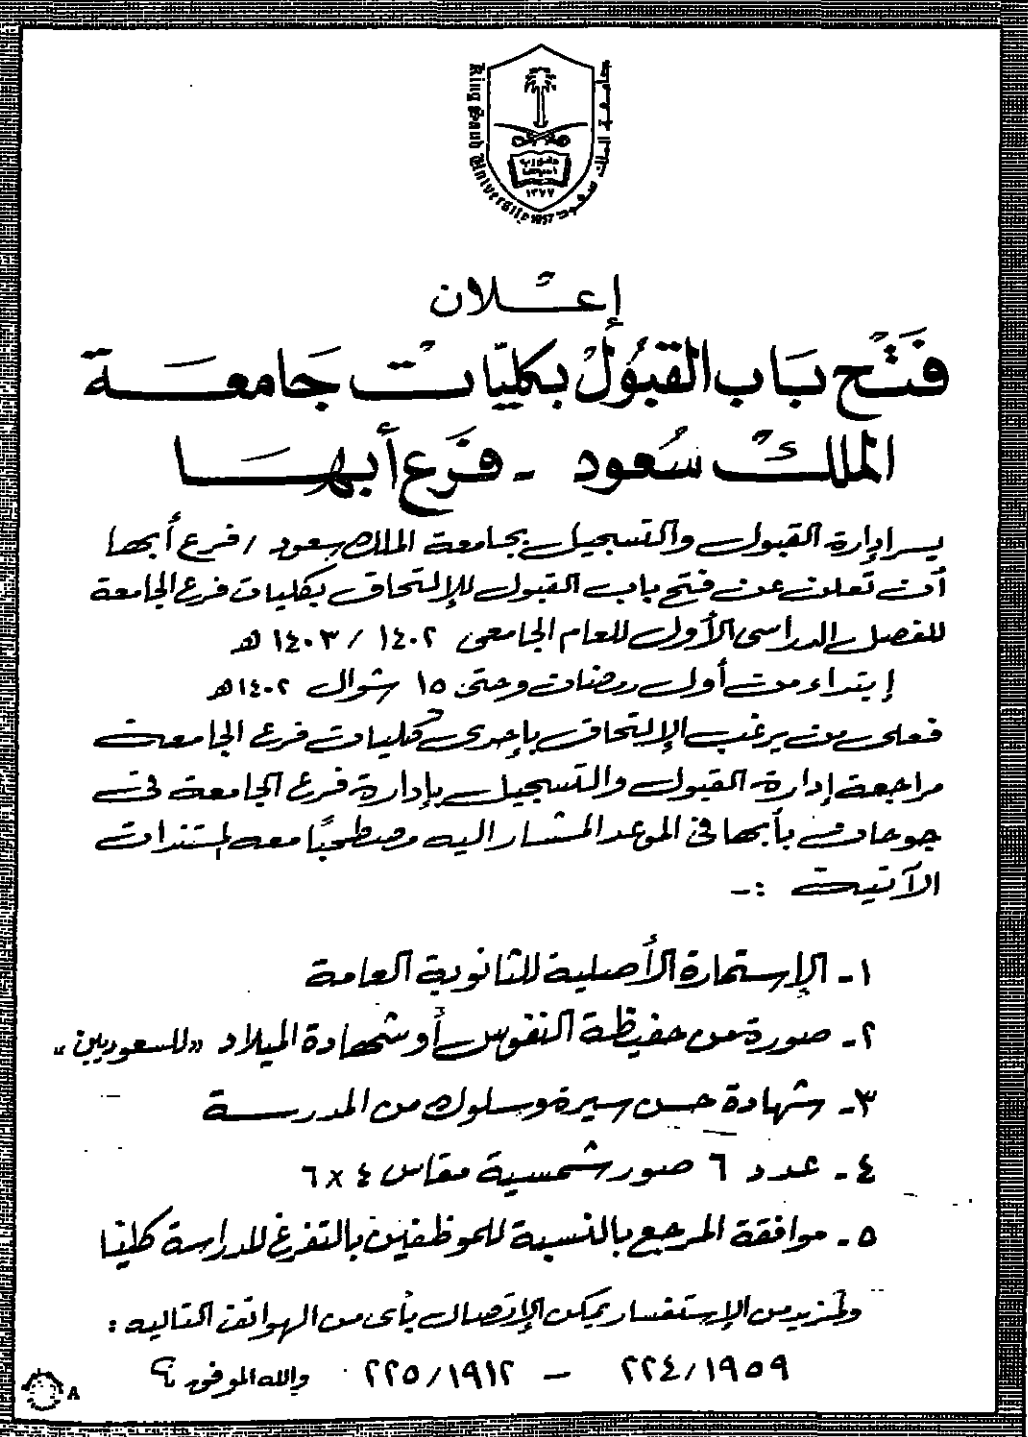 جامعة الملك سعود
King Saud University 1957
١٣٧٧
إعلان
فتح باب القبول بكليات جامعة
الملك سعود - فرع أبها
يسر إدارة القبول والتسجيل بجامعة الملك سعود / فرع أبها
أن تعلن عن فتح باب القبول للإلتحاق بكليات فرع الجامعة
للفصل الدراسي الأول للعام الجامعي ١٤٠٢ / ١٤٠٣ هـ
إبتداء من أول رمضان وحتى ١٥ شوال ١٤٠٢هـ
فعلى من يرغب الإلتحاق بإحدى كليات فرع الجامعة
مراجعة إدارة القبول والتسجيل بإدارة فرع الجامعة في
جوحان بأبها في الموعد المشار اليه مصطحبًا معه لمستندات
الآتية :-
١- الإستمارة الأصلية للثانوية العامة
٢- صورة من حفيظة النفوس أو شهادة الميلاد «للسعوديين»
٣- شهادة حسن سيرة وسلوك من المدرسة
٤- عدد ٦ صور شمسية مقاس ٤ × ٦
٥- موافقة المرجع بالنسبة للموظفين بالتفرغ للدراسة كليًا
ولمزيد من الإستفسار يمكن الإتصال بأى من الهواتف التاليه :
٢٢٤/١٩٥٩ - ٢٢٥/١٩١٢ . والله الموفق
A